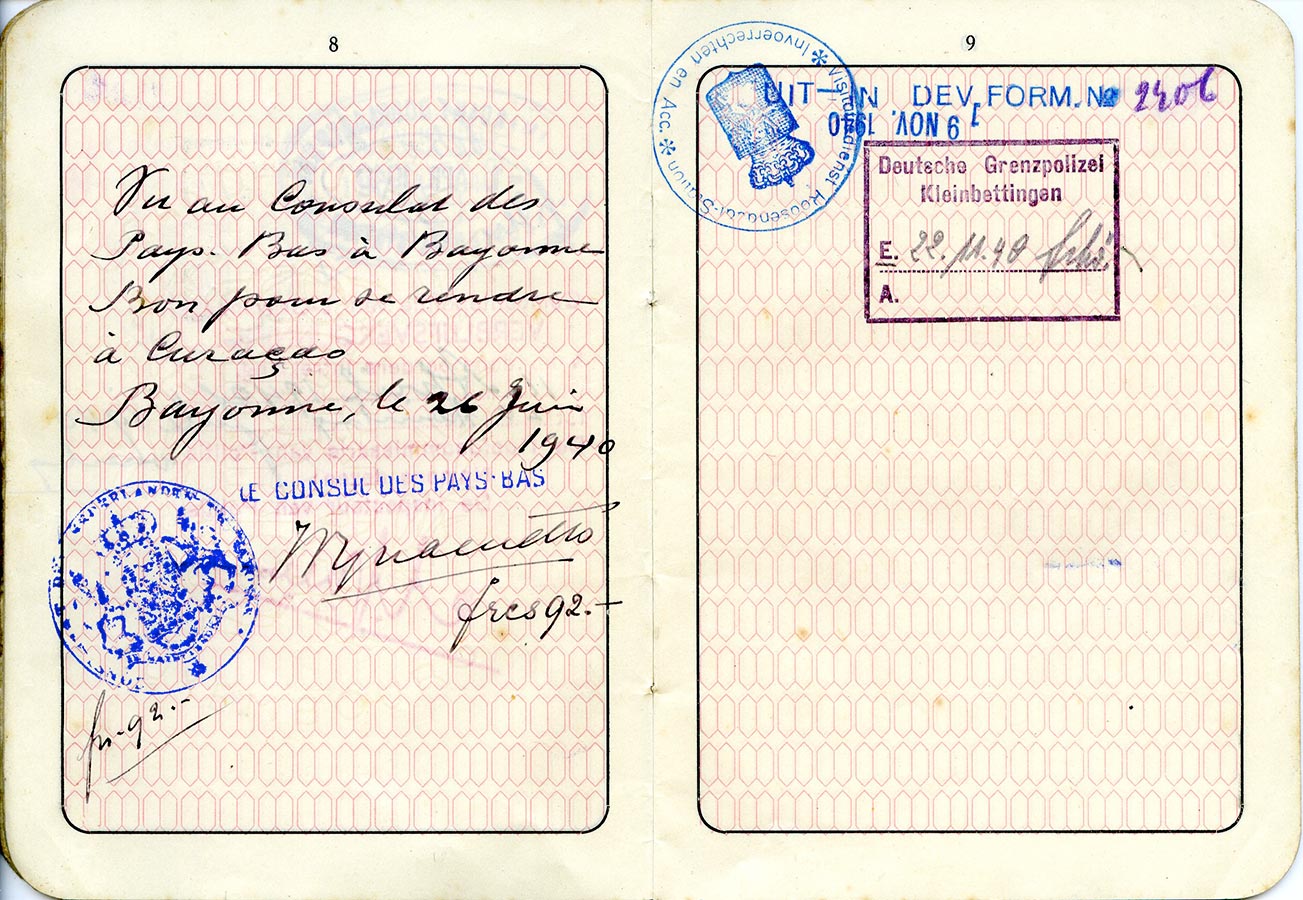 8
Vu au Consulat des
Pays-Bas à Bayonne
Bon pour se rendre
à Curaçao
Bayonne, le 26 Juin
1940
LE CONSUL DES PAYS-BAS
frcs 92.-
frs 92.-
9
Visitatiedienst Roosendaal-Station
Invoerrechten en Acc.
UIT-IN DEV. FORM. No 2406
NOV. 1940
Deutsche Grenzpolizei
Kleinbettingen
E. 22.11.40
A.